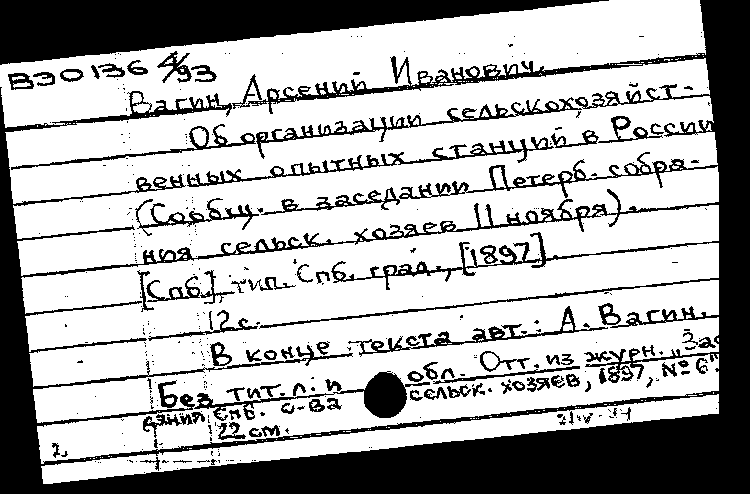 В30136 4/93
Вагин, Арсений Иванович.
Об организации сельскохозяйст-
венных опытных станций в России
(Сообщ. в заседании Петерб. собра-
ния сельск. хозяев 11 ноября).
[Спб.], тип. Спб. град., [1897].
12 с.
В конце текста авт.: А. Вагин.
Без тит. л. и обл. Отт. из журн. „Зас
едания Спб. с-ва сельск. хозяев, 1897, № 6"
22 cm.
2.